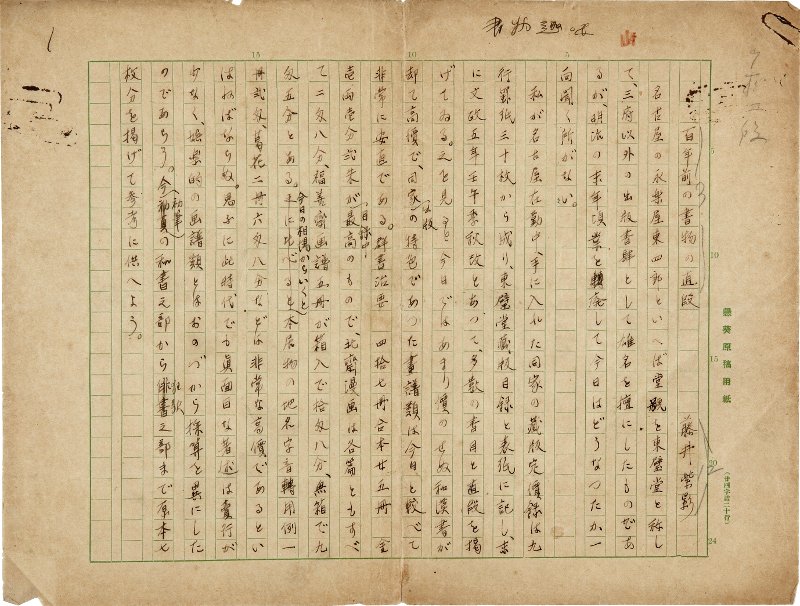 書物趣味
山
1
百年前の書物の直段
藤井紫影
名古屋の永楽屋東四郎といへば堂號を東壁堂と称し
て、三府以外の出版書肆として雄名を擅にしたものであ
るが、明治の末年頃業を轉廃して今日はどうなつたか一
向聞く所がない。
私が名古屋在勤中、手に入れた同家の藏版定價録は九
行罫紙三十枚から成り、東壁堂藏板目録と表紙に記し、末
に文政五年壬午春秋改とあつて、多数の書目と直段を掲
げてゐる。之を見ると今日ではあまり價のせぬ和漢書が
却て高價で、同家の特色であつた畫譜類は今日と較べて
非常に安直である。群書治要 四拾七冊合本廿五冊 金
壱両壱分弐朱が目録中最高のもので、北齋漫画は各篇ともすべ
て二匁八分、福善齋画譜五冊が箱入で拾匁八分、無箱で九
匁五分とある。
今日の相場からいくと
本居物の地名字音轉用例一
冊弐匁、葛花二冊六匁八分などは非常な高價であるとい
はねばならぬ。思ふに此時代でも眞面目な著述は賣行が
少なく、娯楽的の画譜類とはおのづから採算を異にした
のであらう。今初丁の和書之部から俳書之部まで原本七
枚分を掲げて参考に供へよう。
懸葵原稿用紙
5
10
15
20
24
5
10
15